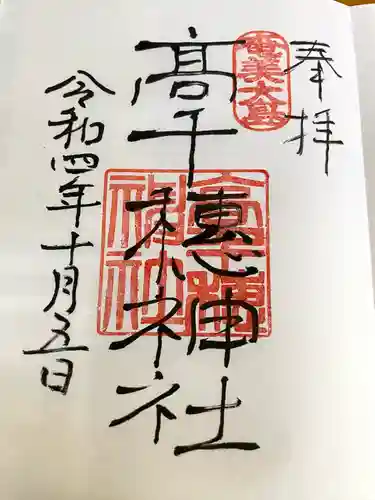 奉拝
奄美大島
高千穂神社
高千穂
神社
令和四年十月五日